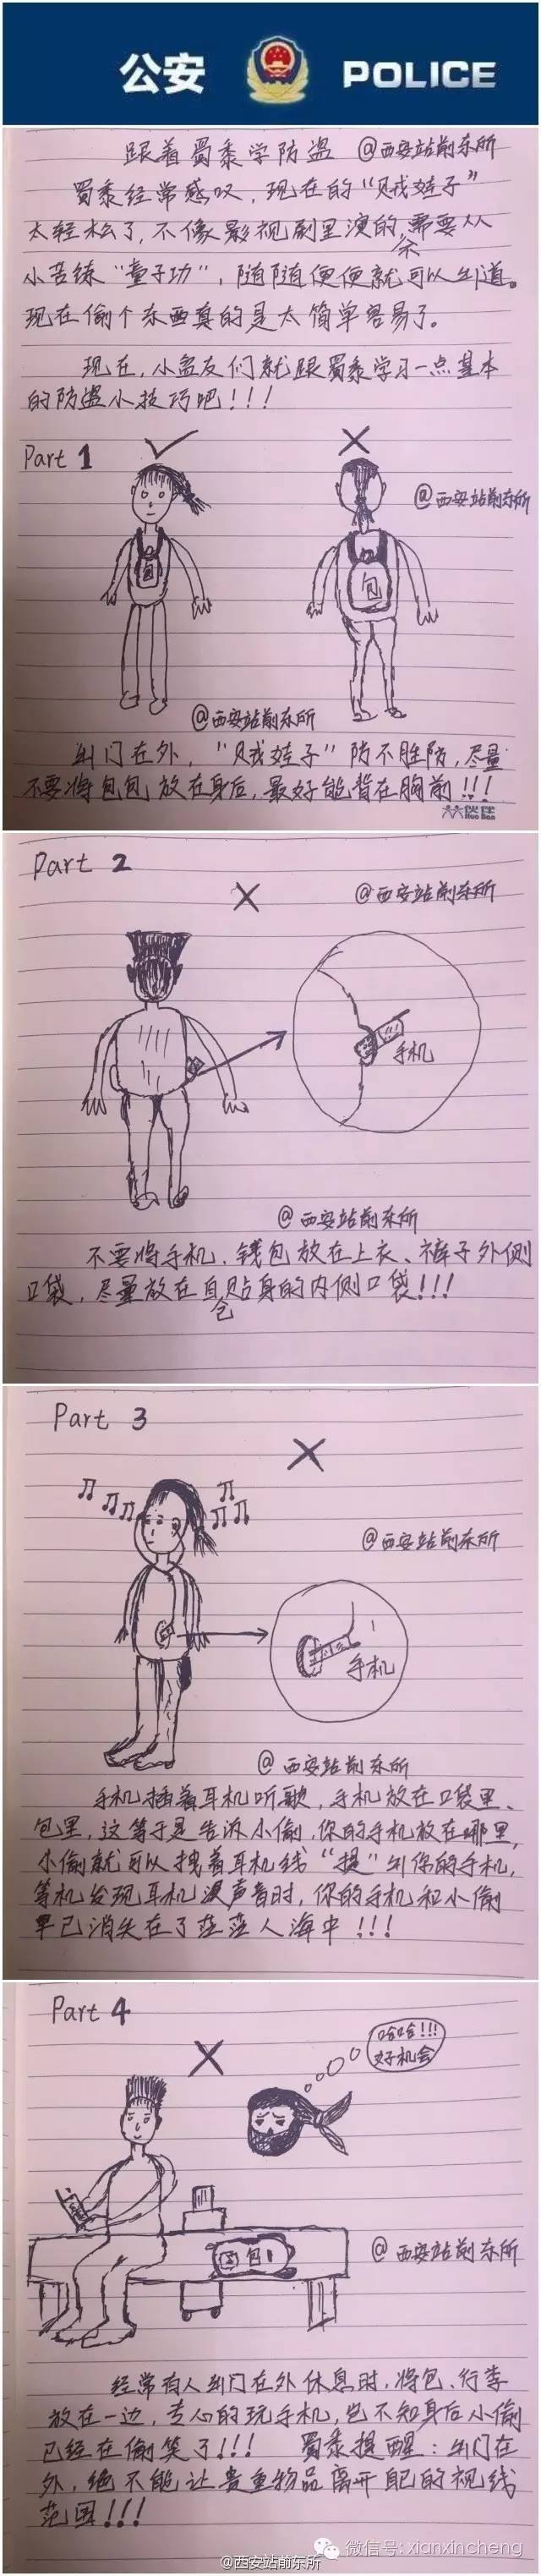 公安 POLICE
跟着蜀黍学防盗 @西安站前东所
蜀黍经常感叹，现在的“贼娃子”
太轻松了，不像影视剧里演的，需要从
小苦练“童子功”，随随便便就可以出道。
现在偷个东西真的是太简单容易了。
现在，小盆友们就跟蜀黍学习一点基本
的防盗小技巧吧！！！
Part 1
@西安站前东所
包
包
@西安站前东所
出门在外，“贼娃子”防不胜防，尽量
不要将包包放在身后，最好能背在胸前！！！
伙伴
Part 2
@西安站前东所
手机
@西安站前东所
不要将手机、钱包放在上衣、裤子外侧
口袋，尽量放在自己贴身的内侧口袋！！！
Part 3
@西安站前东所
手机
@西安站前东所
手机插着耳机听歌，手机放在口袋里、
包里，这等于是告诉小偷，你的手机放在哪里，
小偷就可以拽着耳机线“提”出你的手机，
等机发现耳机没声音时，你的手机和小偷
早已消失在了茫茫人海中！！！
Part 4
哈哈！！！
好机会
包
@西安站前东所
经常有人出门在外休息时，将包、行李
放在一边，专心的玩手机，岂不知身后小偷
已经在偷笑了！！！ 蜀黍提醒：出门在
外，绝不能让贵重物品离开自己的视线
范围！！！
微信号: xianxincheng
@西安站前东所